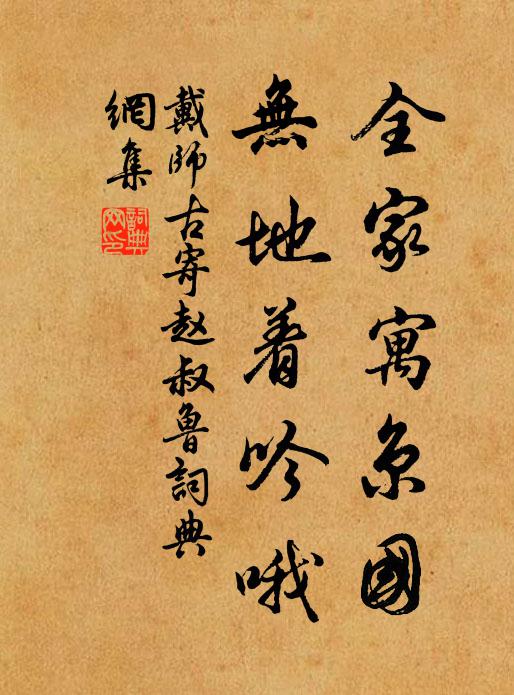 全家寓京國
無地着吟哦
戴師古寄赵叔魯詞典
網集
詞典
网印